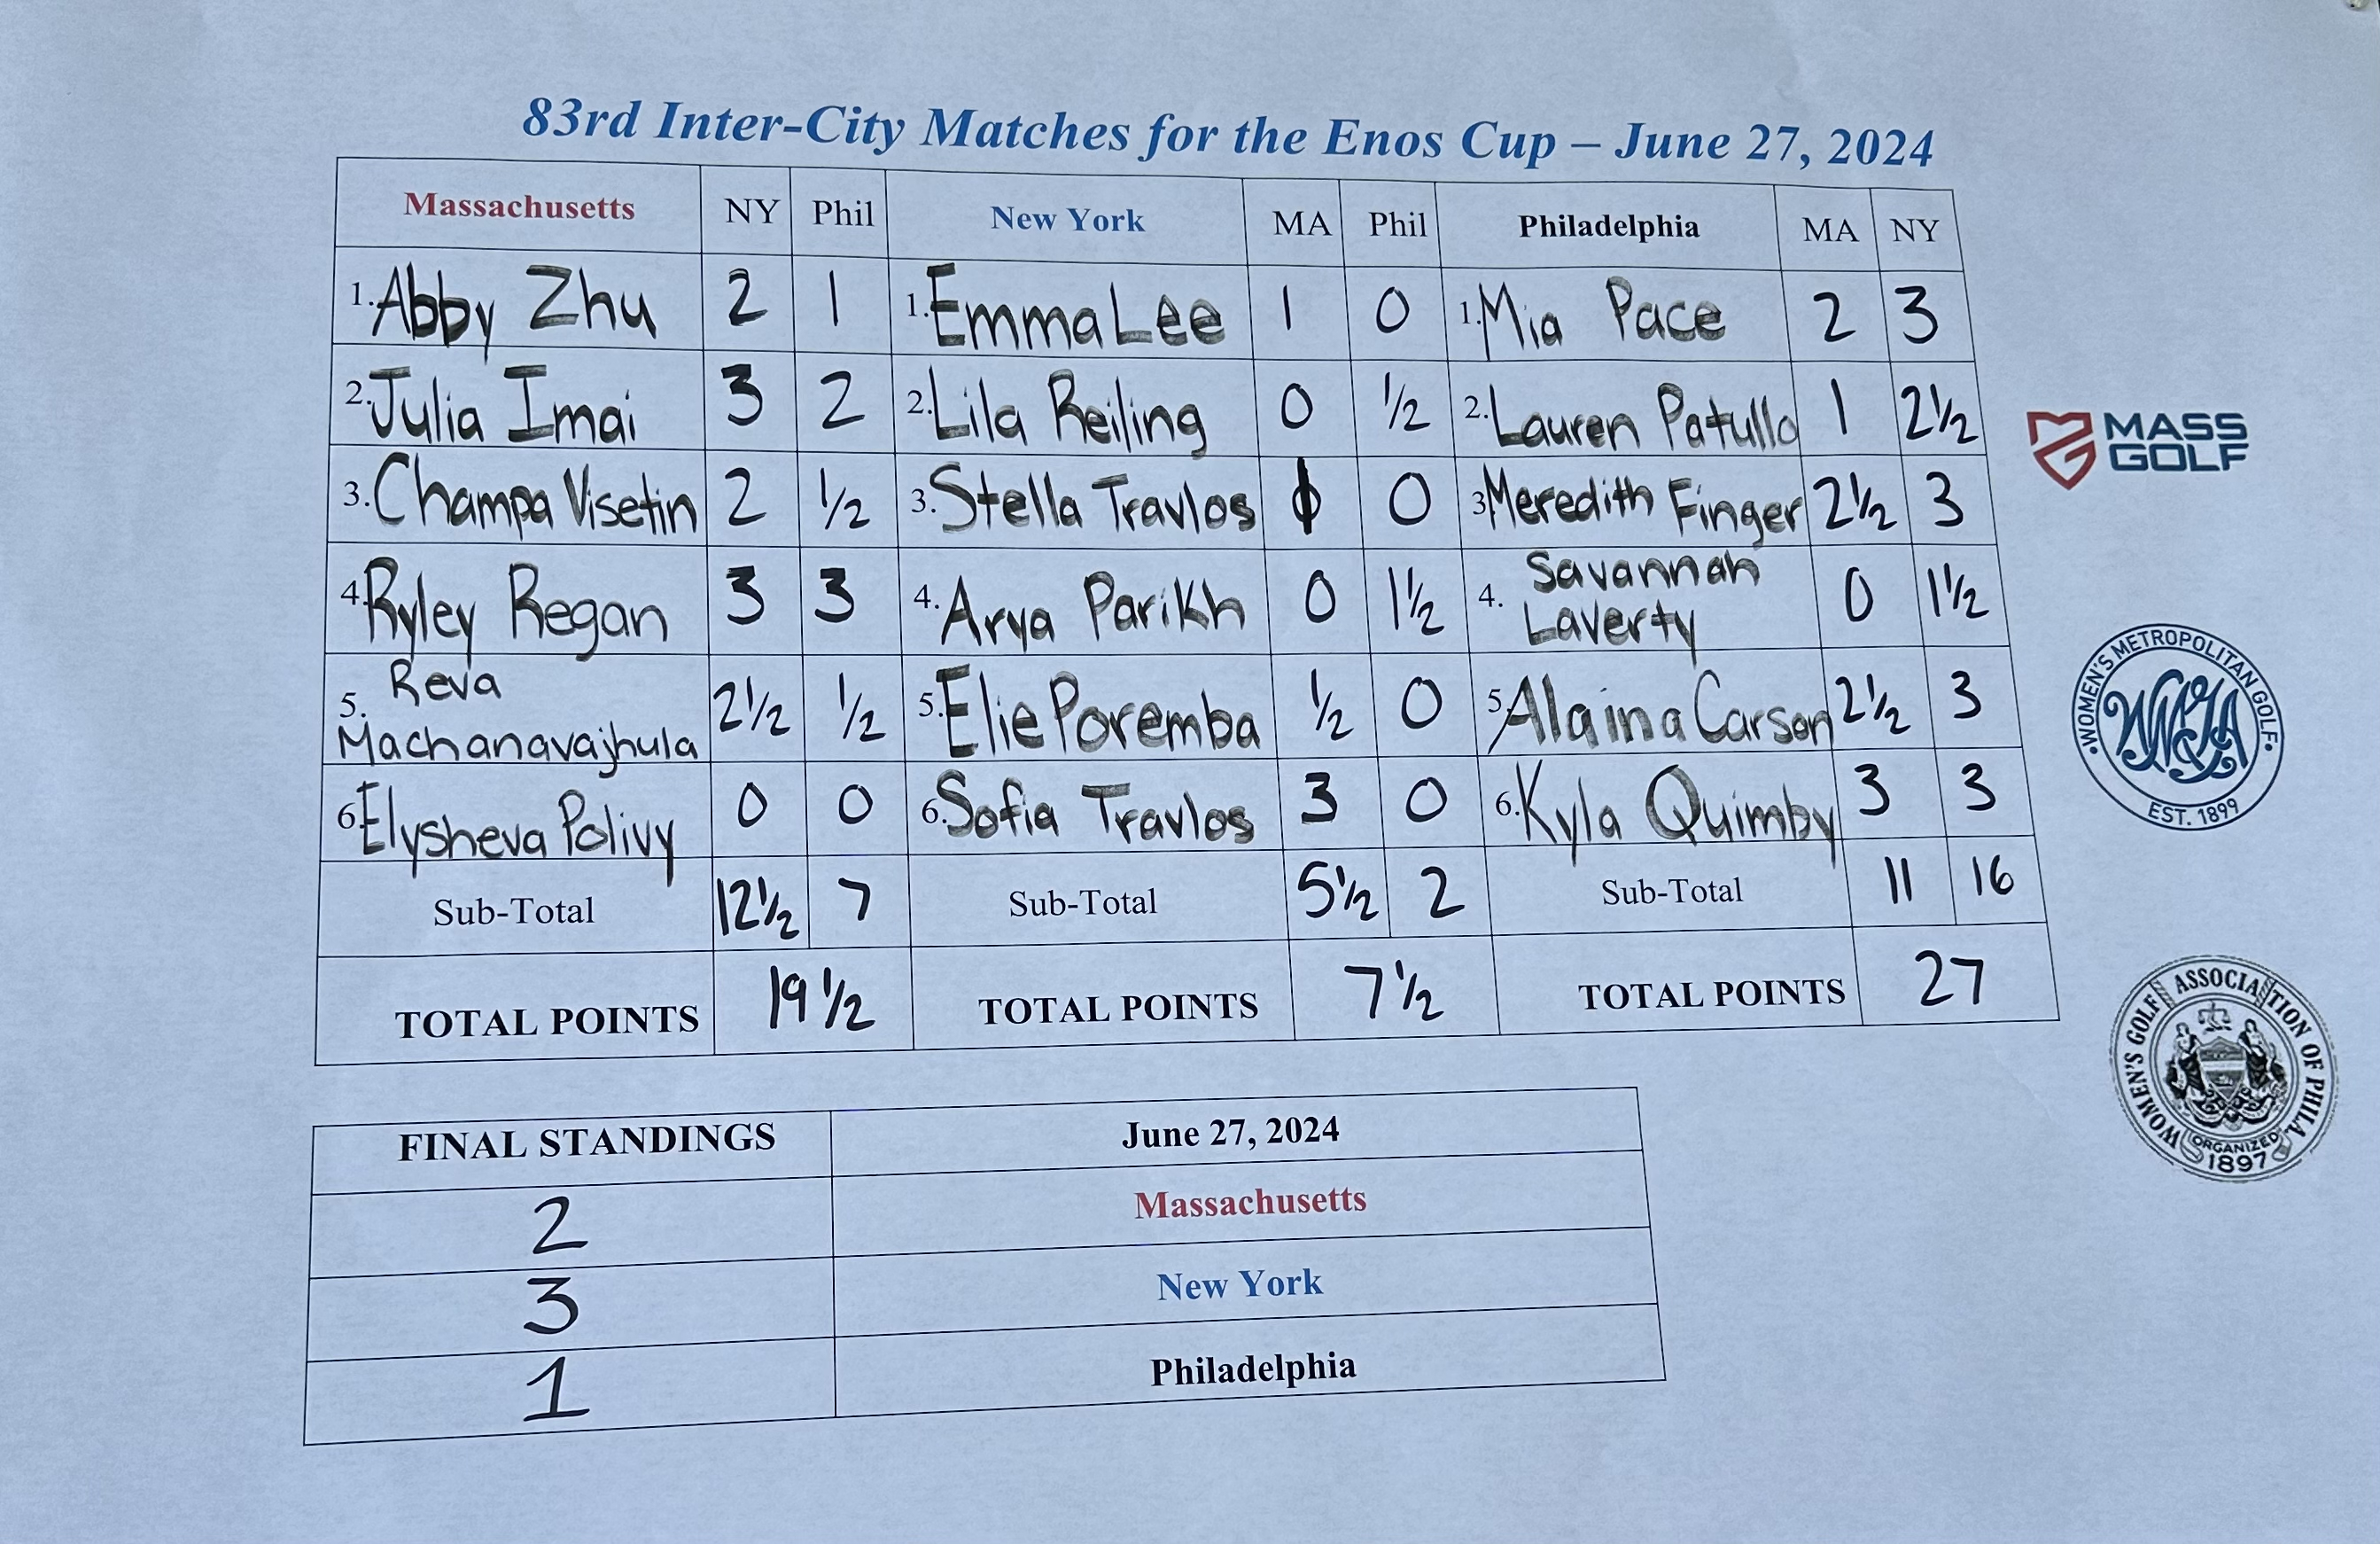 83rd Inter-City Matches for the Enos Cup – June 27, 2024
Massachusetts NY Phil New York MA Phil Philadelphia MA NY
1. Abby Zhu 2 1 1. Emma Lee 1 0 1. Mia Pace 2 3
2. Julia Imai 3 2 2. Lila Reiling 0 1/2 2. Lauren Patullo 1 2 1/2
3. Champa Visetin 2 1/2 3. Stella Travlos 1 0 3 Meredith Finger 2 1/2 3
4. Ryley Regan 3 3 4. Arya Parikh 0 1 1/2 4. Savannah Laverty 0 1 1/2
5. Reva Machanavajhula 2 1/2 1/2 5. Elie Poremba 1/2 0 5. Alaina Carson 2 1/2 3
6. Elysheva Polivy 0 0 6. Sofia Travlos 3 0 6. Kyla Quimby 3 3
Sub-Total 12 1/2 7 Sub-Total 5 1/2 2 Sub-Total 11 16
TOTAL POINTS 19 1/2 TOTAL POINTS 7 1/2 TOTAL POINTS 27
FINAL STANDINGS June 27, 2024
2 Massachusetts
3 New York
1 Philadelphia
MASS
GOLF
WOMEN'S METROPOLITAN GOLF
WMGA
EST. 1899
WOMEN'S GOLF ASSOCIATION OF PHILA.
ORGANIZED
1897